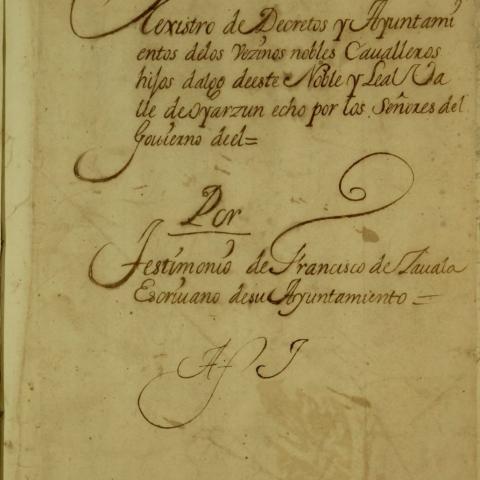 Rexistro de Decretos y Ayuntami
entos delos Vezinos nobles Cavalleros
hijos dalgo deeste Noble y Leal Va
lle de Oyarzun echo por los Señores del
Govierno deel=
Por
Testimonio de Francisco de Zavala
Escrivano desu Ayuntamiento=